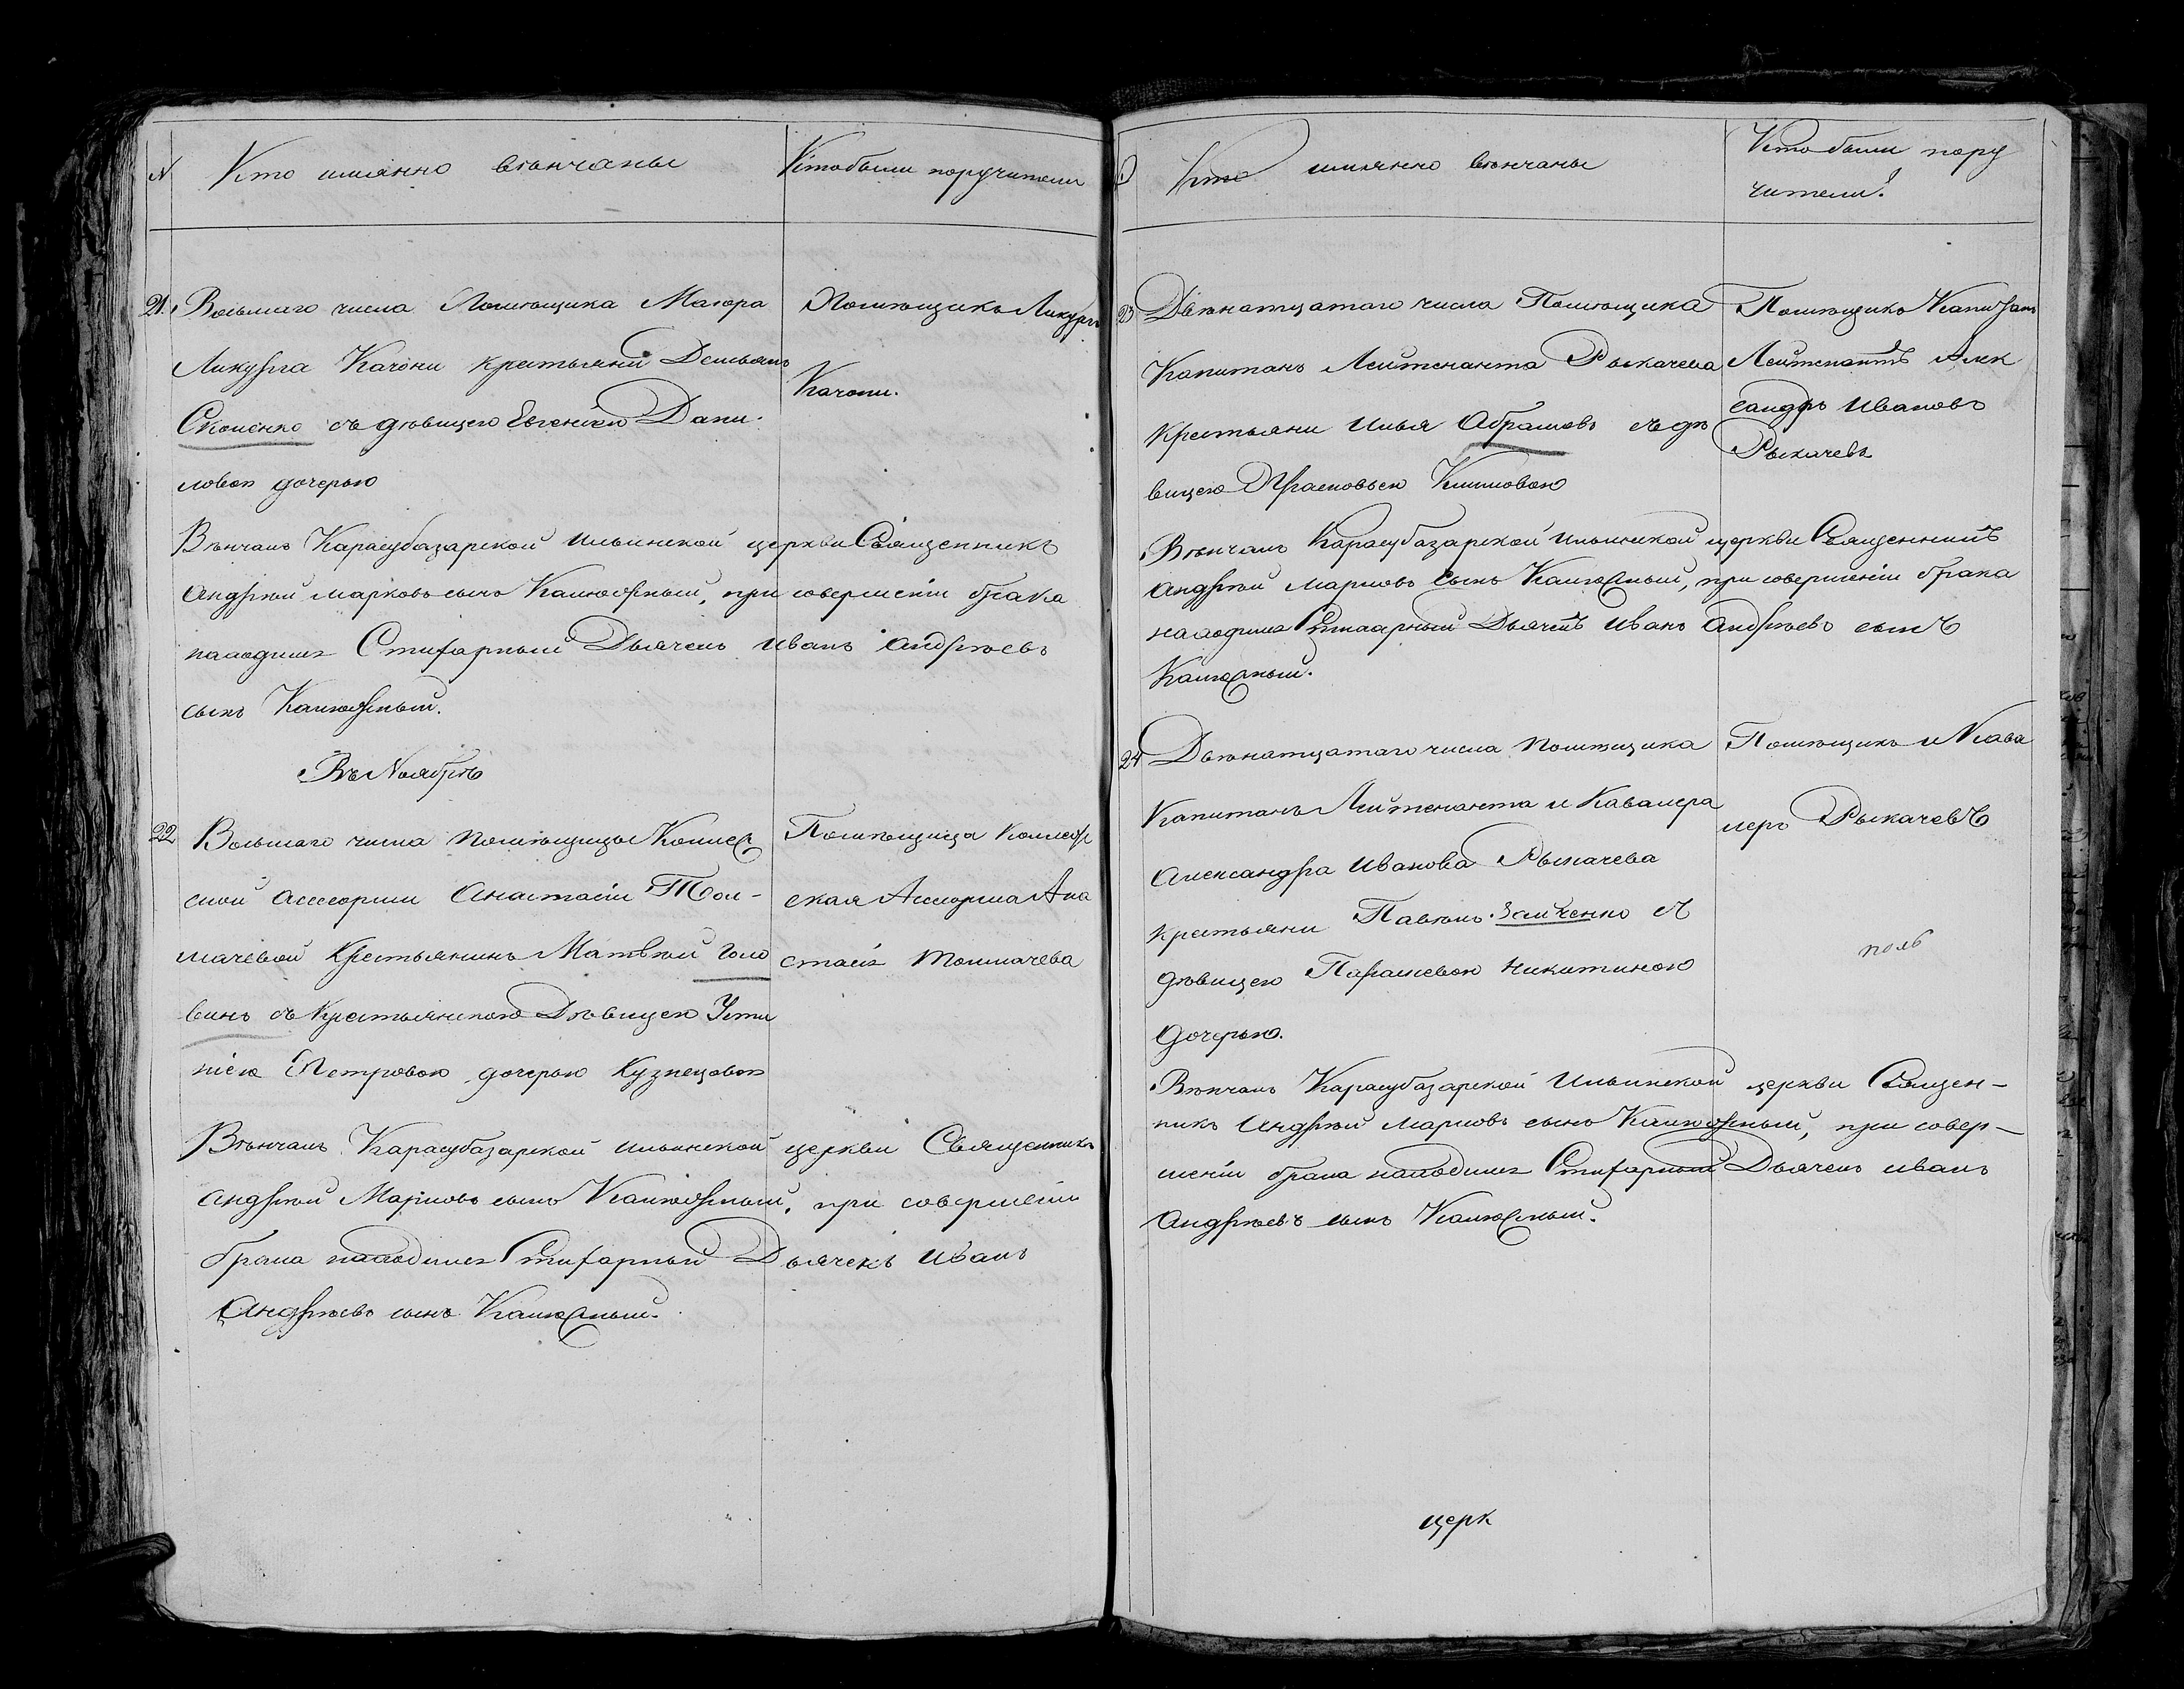 N Кто имянно вѣнчаны
Кто были поручители
21. Восьмаго числа Помѣщика Маіора
Ликурга Качони крестьяни Демьянъ
Скоменко съ дѣвицею Евгеніею Дани-
ловою дочерью
Помѣщикъ Ликургъ
Качони.
Вѣнчалъ Карасубазарской Ильинской церкви Священникъ
Андрей Марковъ сынъ Калюжный, при совершеніи брака
находился Стихарный Дьячекъ Иванъ Андрѣевъ
сынъ Калюжный.
Въ Ноябрѣ
22 Восьмаго числа помѣщицы Коллеж
ской Ассесорши Анастасіи Тол-
мачевой Крестьянинъ Матвѣй Голо
винъ съ Крестьянскою Дѣвицею Усти
ніею Петровою дочерью Кузнецовою
Помѣщица Коллеж
ская Ассесорша Ана
стасія Толмачева
Вѣнчалъ Карасубазарской Ильинской церкви Священникъ
Андрей Марковъ сынъ Калюжный, при совершеніи
брака находился Стихарный Дьячекъ Иванъ
Андрѣевъ сынъ Калюжный.
Кто имянно вѣнчаны
Кто были пору
чители?
23 Двѣнатцатаго числа Помѣщика
Капитанъ Лейтенанта Рыкачева
крестьяни Илья Абрамовъ съ дѣ
вицею Прасковьею Климовою
Помѣщикъ Капитанъ
Лейтенантъ Алек
сандръ Ивановъ
Рыкачевъ
Вѣнчалъ Карасубазарской Ильинской церкви Священникъ
Андрей Марковъ сынъ Калюжный, при совершеніи брака
находился Стихарный Дьячекъ Иванъ Андрѣевъ сынъ
Калюжный.
24 Двѣнатцатаго числа помѣщика
Капитанъ Лейтенанта и Кавалера
Александра Иванова Рыкачева
крестьяни Павелъ Заиченко съ
дѣвицею Параскевою Никитиною
дочерью.
Помѣщикъ и Кава
леръ Рыкачевъ
Вѣнчалъ Карасубазарской Ильинской церкви Священ-
никъ Андрей Марковъ сынъ Калюжный, при совер-
шеніи брака находился Стихарный Дьячекъ Иванъ
Андрѣевъ сынъ Калюжный.
церк